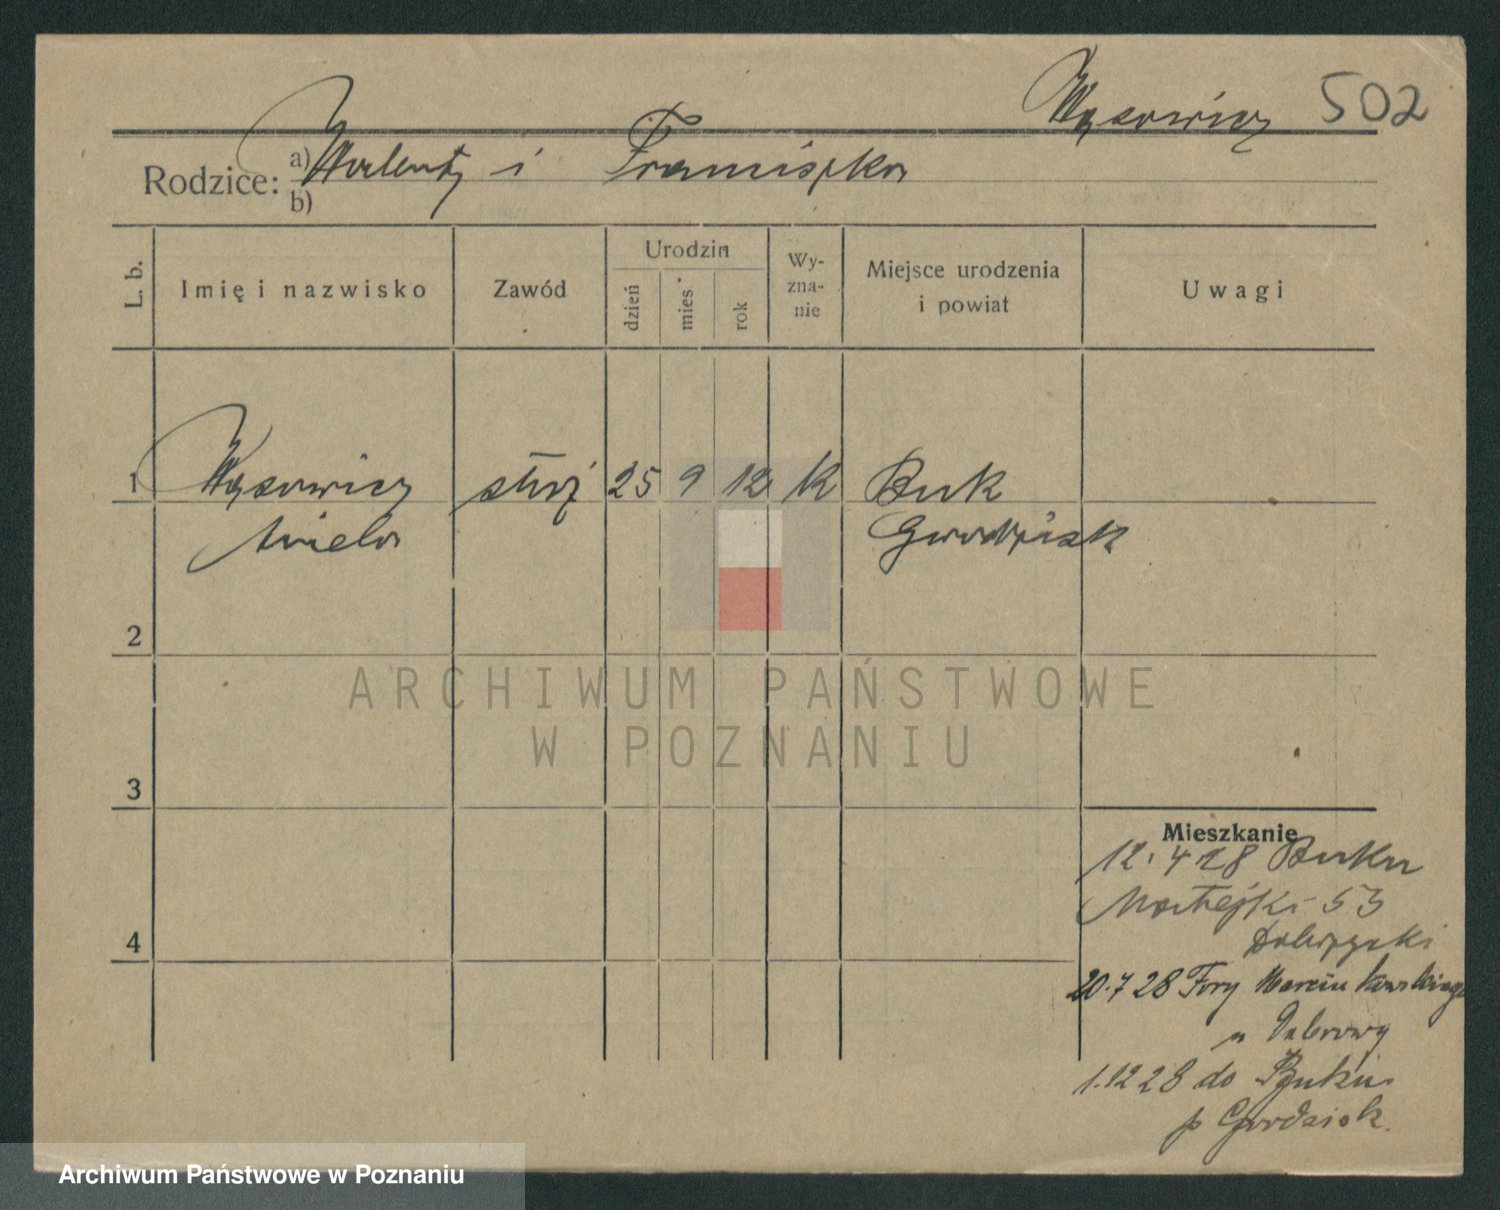 Wąsowicz 502
Rodzice: a) Walenty i Franciszka
b)
L. b. Imię i nazwisko Zawód Urodzin dzień mies. rok Wyznanie Miejsce urodzenia i powiat Uwagi
1 Wąsowicz służ 25 9 12 k Buk
Aniela Grodzisk
2
ARCHIWUM PAŃSTWOWE
W POZNANIU
3
Mieszkanie
12.4 28 Buku
Matejki 53
4
20.7 28 Fory Marcinkowskiego
u Dąbrowy
1.12 28 do Buku
p Grodzisk.
Archiwum Państwowe w Poznaniu